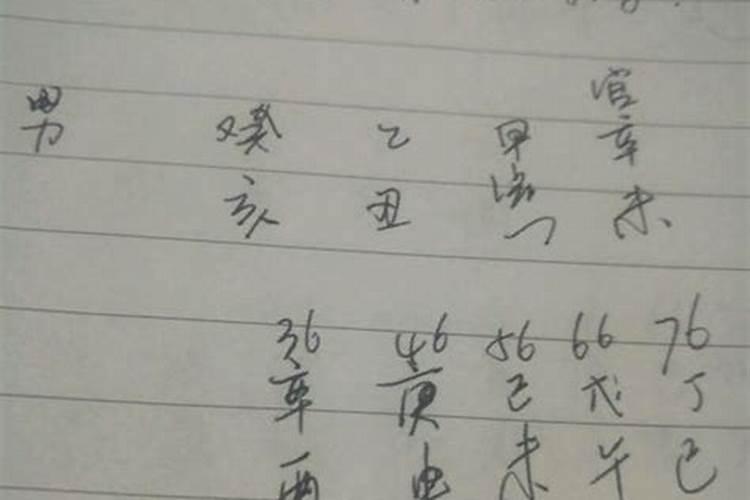 官
男 癸 乙 甲 辛
亥 丑 未
36 46 56 66 76
辛 庚 己 戊 丁
酉 申 未 午 巳